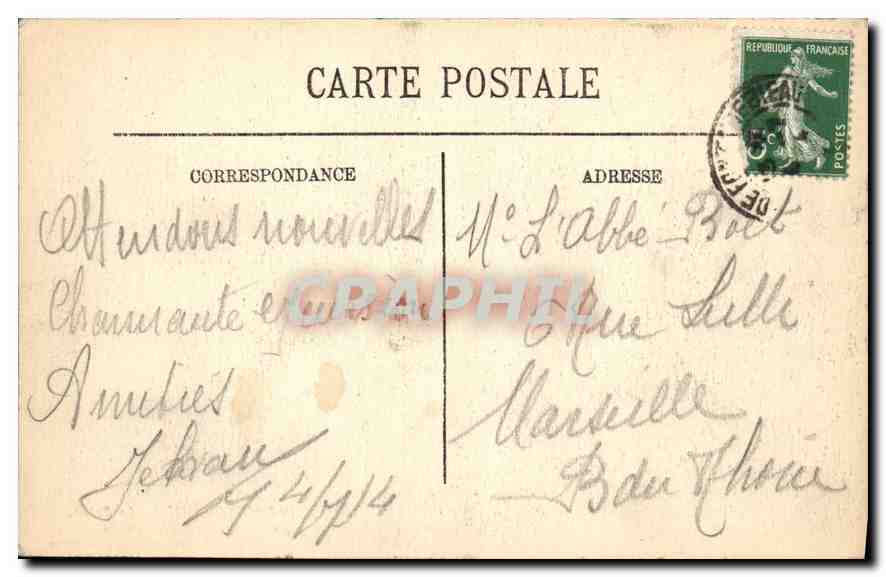 CARTE POSTALE
REPUBLIQUE FRANÇAISE
POSTES
5c
CORRESPONDANCE
Attendons nouvelles
Charmante
Amitiés
4/7/14
ADRESSE
Mr L'Abbé
6 Rue Lulli
Marseille
B du Rhône
CPAPHIL